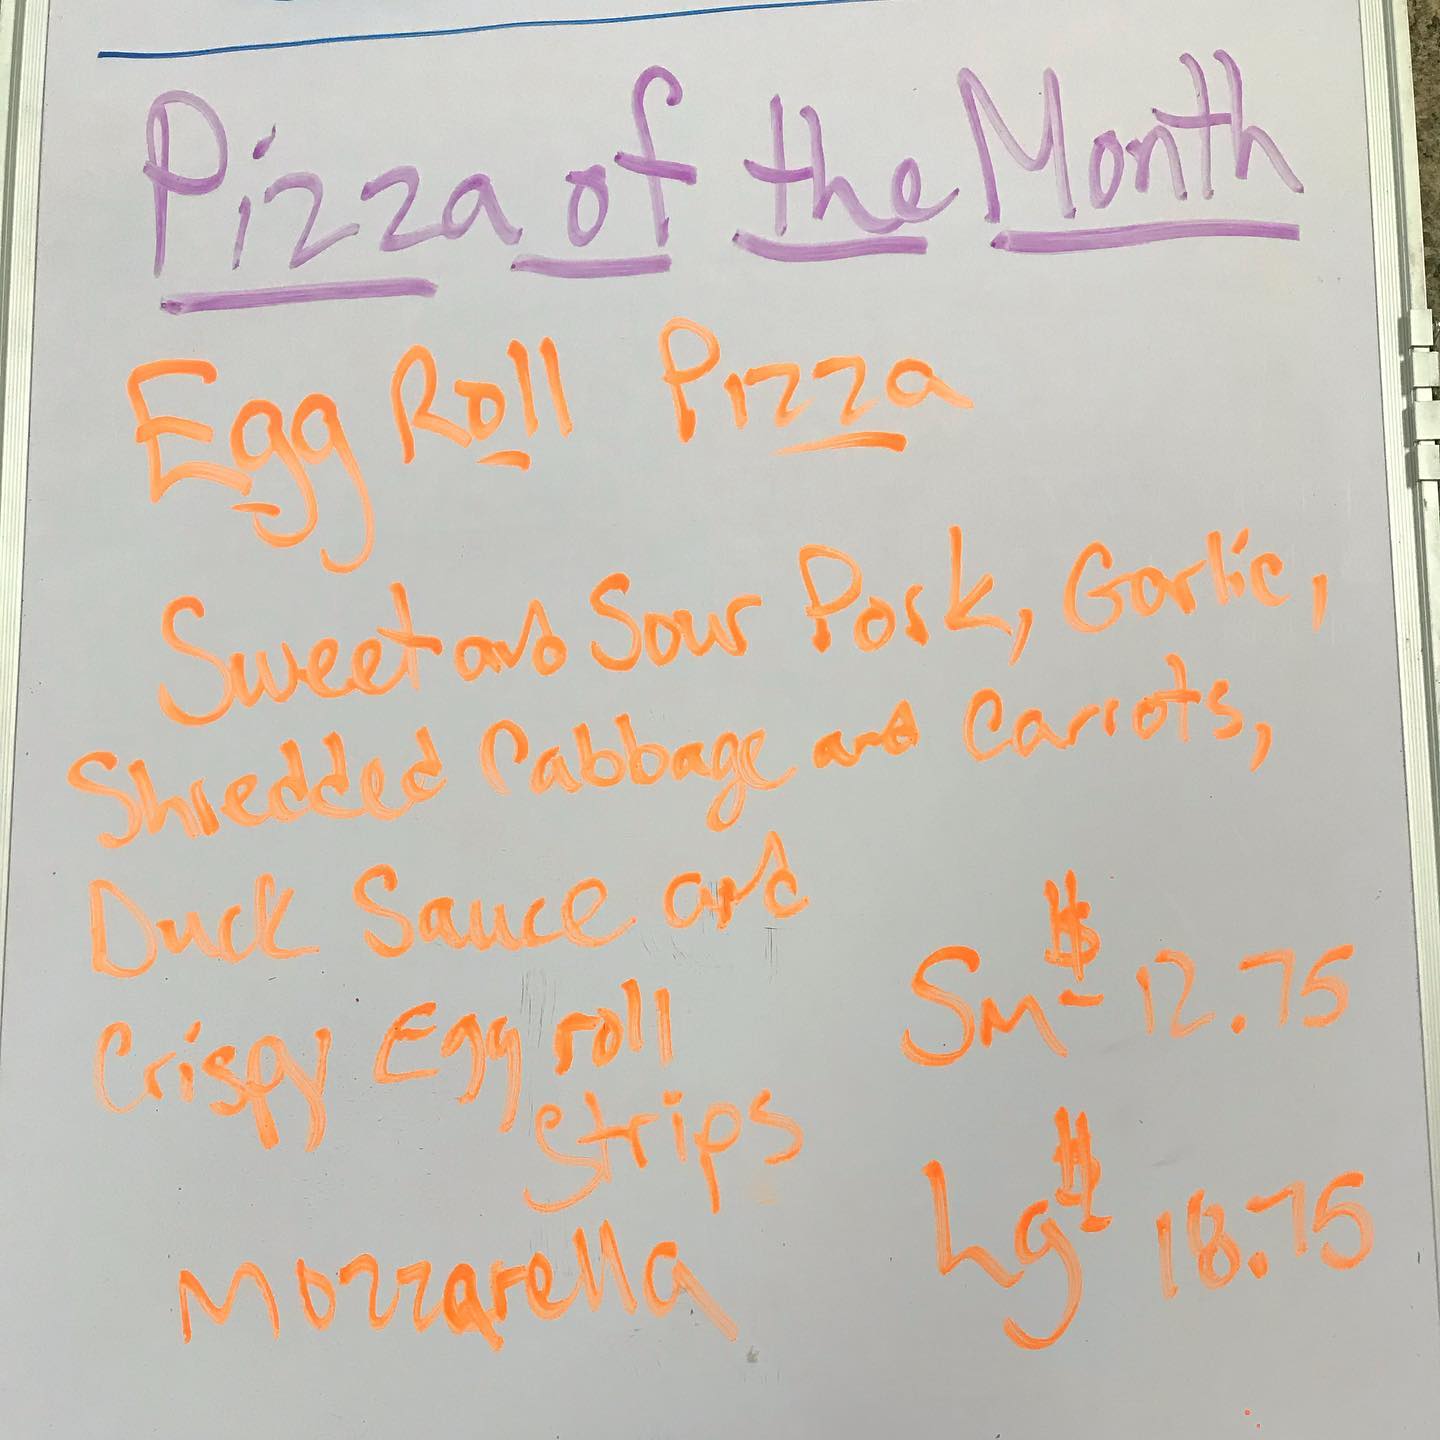 Pizza of the Month
Egg Roll Pizza
Sweet and Sour Pork, Garlic,
Shredded Cabbage and Carrots,
Duck Sauce and
Crispy Egg roll
Strips
Mozzarella
Sm - $12.75
Lg - $18.75